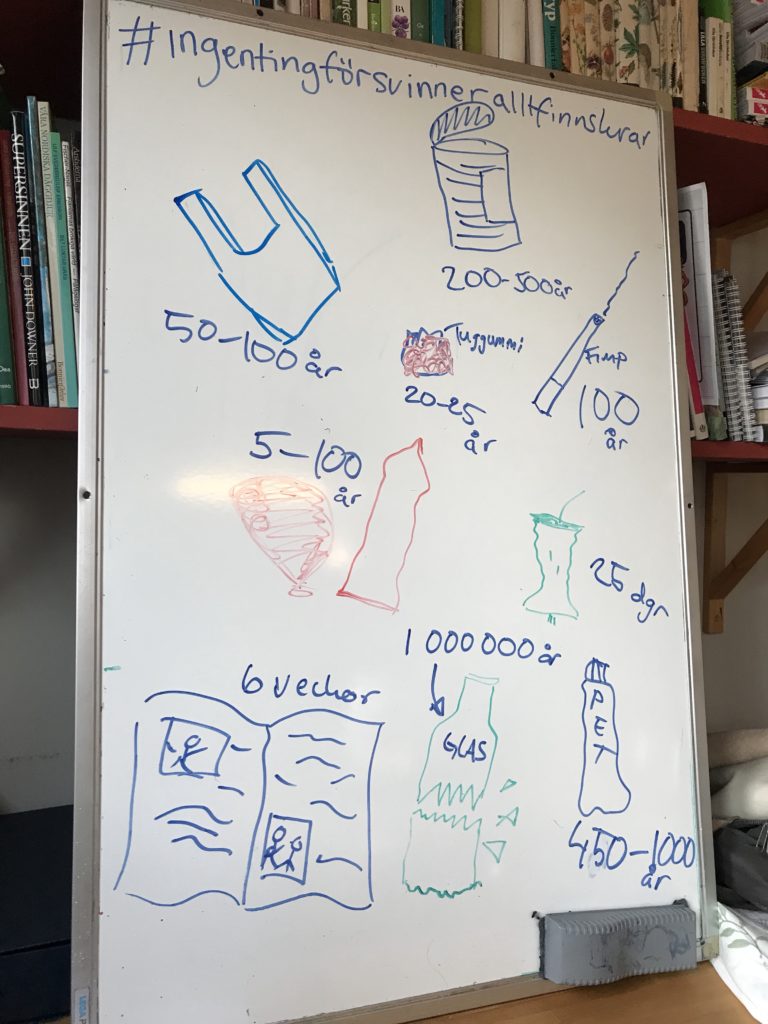 #ingentingförsvinneralltfinnskvar
200-500 år
50-100 år
Tuggummi
20-25
år
Fimp
100
år
5-100
år
25 dgr
1 000 000 år
6 veckor
GLAS
PET
450-1000
år
SUPERSINNEN
JOHN DOWNER
B
VÅRA NORDISKA DAGGDJUR
BA